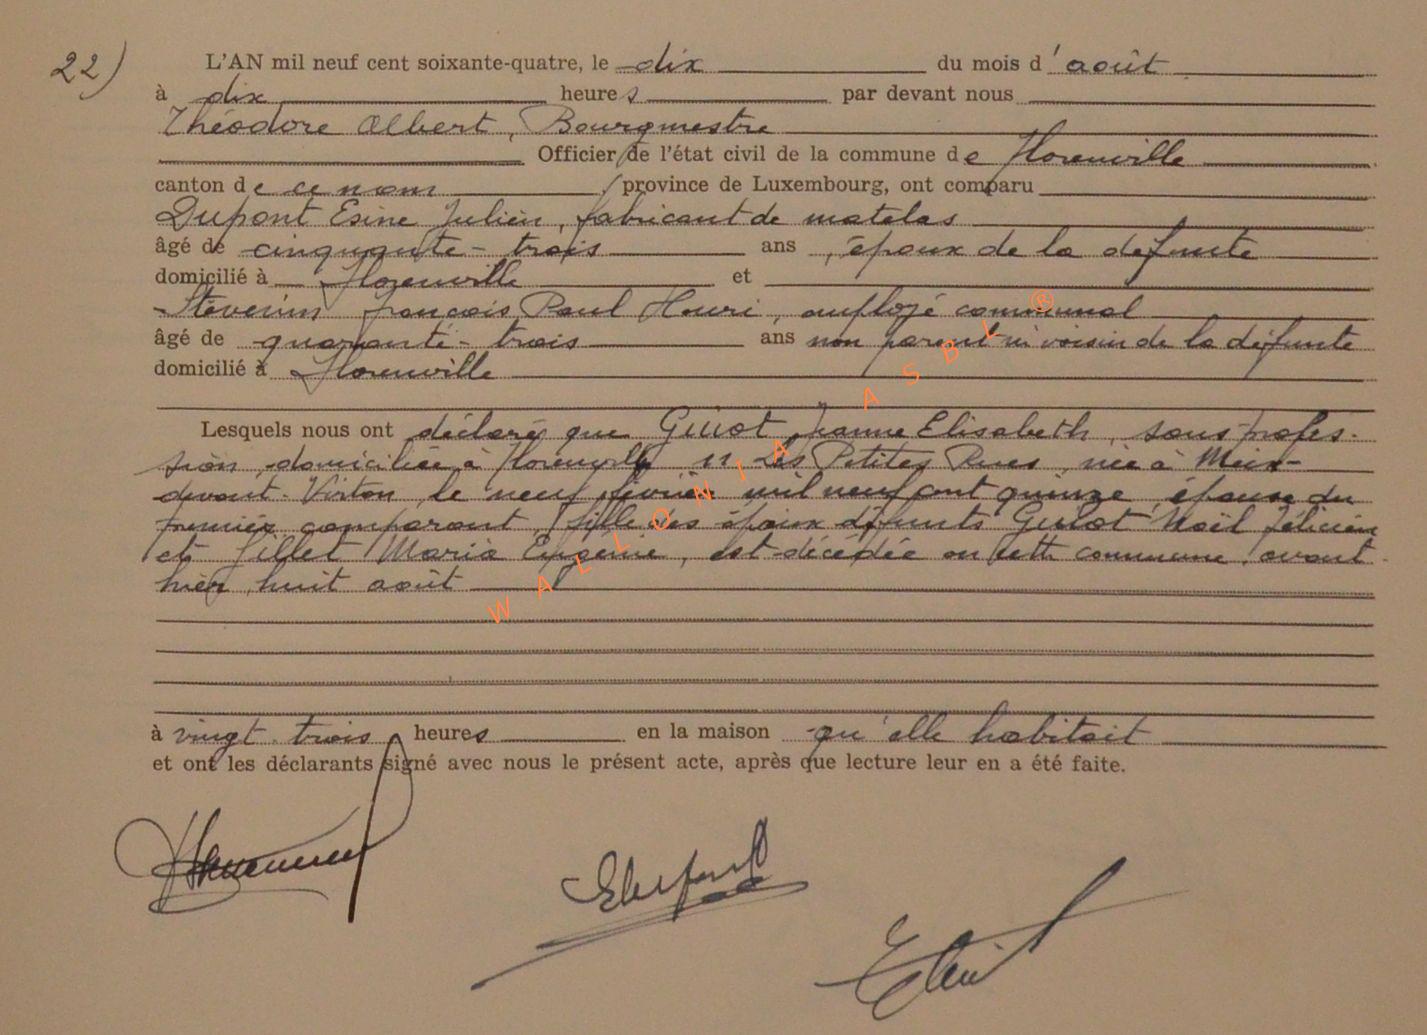 22)
L'AN mil neuf cent soixante-quatre, le dix du mois d'août
à dix heures par devant nous
Théodore Albert, Bourgmestre
Officier de l'état civil de la commune de Florenville
canton de ce nom, province de Luxembourg, ont comparu
Dupont Esine Julien, fabricant de matelas
âgé de cinquante-trois ans, époux de la défunte
domicilié à Florenville et
Stévenin François Paul Henri, employé communal
âgé de quarante-trois ans non parent ni voisin de la défunte
domicilié à Florenville
Lesquels nous ont déclaré que Guiot Jeanne Elisabeth, sans profes-
sion, domiciliée à Florenville 11 Les Petites Rues, née à Meix-
devant-Virton le neuf février mil neuf cent quinze, épouse du
premier comparant, fille des époux défunts Guiot Noël Félicien
et Gillet Maria Eugénie, est décédée en cette commune, avant
hier huit août
à vingt-trois heures en la maison qu'elle habitait
et ont les déclarants signé avec nous le présent acte, après que lecture leur en a été faite.
WALLONIA ASBL ®